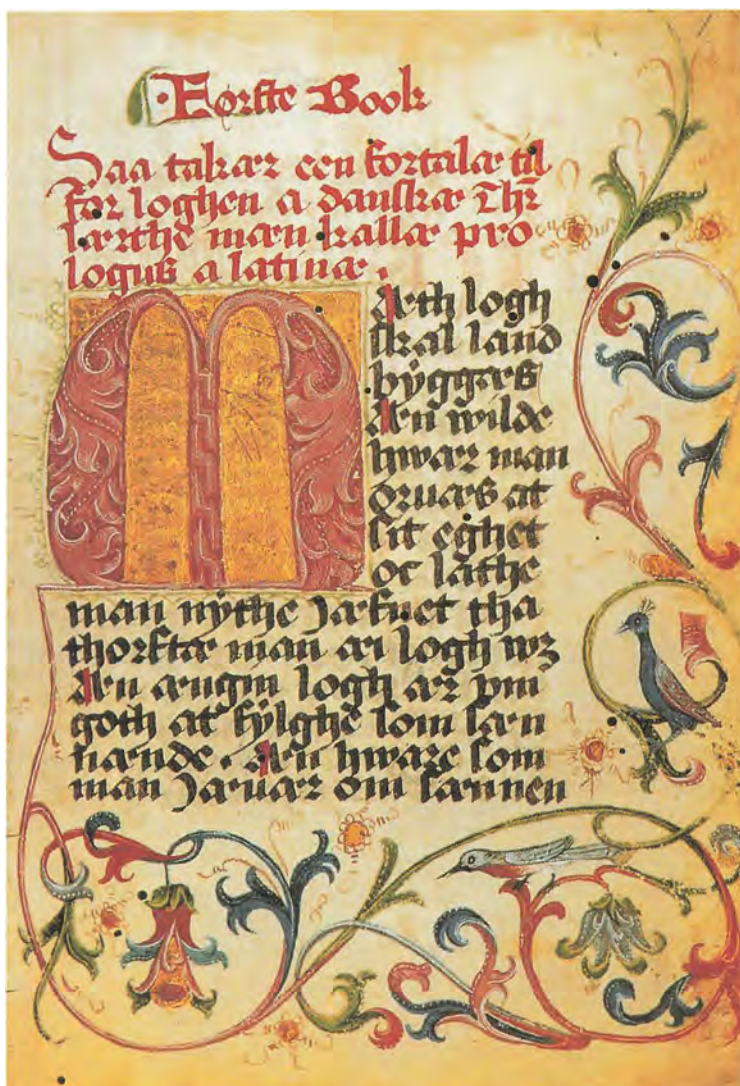 Førstæ Book
Saa takær een fortalæ til
for loghen a danskæ
lærthe mæn kallæ pro
logus a latinæ .
Mæth logh
skal land
byggæs
Æn wilde
hwær man
oruæs at
sit eghet
oc lathe
man nythe Jafnet tha
thorftæ man æi logh wz
Æn ængin logh ær
goth at fylghe som sæn
nænde . Æn hware som
man Jæuær om sænnen